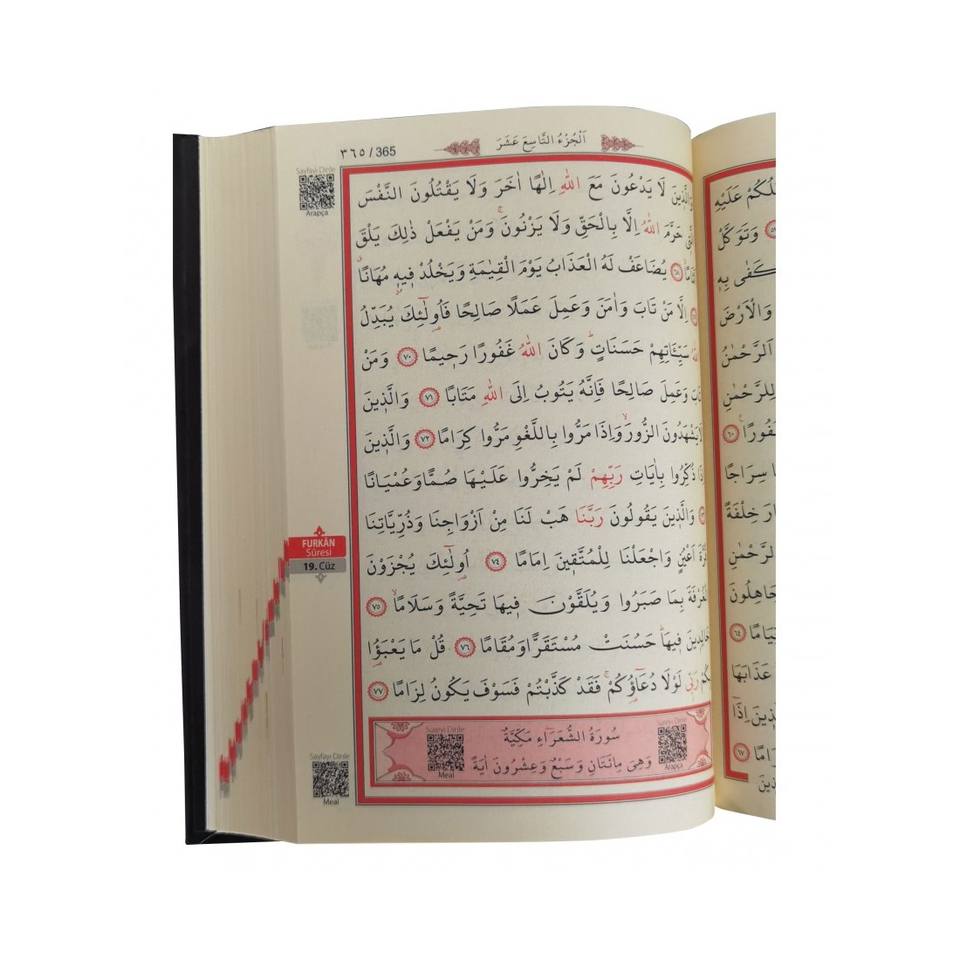 ٣٦٥ / 365
اَلْجُزْءُ التَّاسِعَ عَشَرَ
Sayfayı Dinle
Arapça
لَا يَدْعُونَ مَعَ اللّٰهِ اِلٰهًا اٰخَرَ وَلَا يَقْتُلُونَ النَّفْسَ
حَرَّمَ اللّٰهُ اِلَّا بِالْحَقِّ وَلَا يَزْنُونَۚ وَمَنْ يَفْعَلْ ذٰلِكَ يَلْقَ
﴿٦٨﴾ يُضَاعَفْ لَهُ الْعَذَابُ يَوْمَ الْقِيٰمَةِ وَيَخْلُدْ فٖيهٖ مُهَانًاۗ
اِلَّا مَنْ تَابَ وَاٰمَنَ وَعَمِلَ عَمَلًا صَالِحًا فَاُو۬لٰٓئِكَ يُبَدِّلُ
سَيِّـَٔاتِهِمْ حَسَنَاتٍۜ وَكَانَ اللّٰهُ غَفُورًا رَحٖيمًا ﴿٧٠﴾ وَمَنْ
وَعَمِلَ صَالِحًا فَاِنَّهُ يَتُوبُ اِلَى اللّٰهِ مَتَابًا ﴿٧١﴾ وَالَّذٖينَ
يَشْهَدُونَ الزُّورَۙ وَاِذَا مَرُّوا بِاللَّغْوِ مَرُّوا كِرَامًا ﴿٧٢﴾ وَالَّذٖينَ
ذُكِّرُوا بِاٰيَاتِ رَبِّهِمْ لَمْ يَخِرُّوا عَلَيْهَا صُمًّا وَعُمْيَانًا
وَالَّذٖينَ يَقُولُونَ رَبَّنَا هَبْ لَنَا مِنْ اَزْوَاجِنَا وَذُرِّيَّاتِنَا
اَعْيُنٍ وَاجْعَلْنَا لِلْمُتَّقٖينَ اِمَامًا ﴿٧٤﴾ اُو۬لٰٓئِكَ يُجْزَوْنَ
الْغُرْفَةَ بِمَا صَبَرُوا وَيُلَقَّوْنَ فٖيهَا تَحِيَّةً وَسَلَامًاۙ ﴿٧٥﴾
خَالِدٖينَ فٖيهَاۜ حَسُنَتْ مُسْتَقَرًّا وَمُقَامًا ﴿٧٦﴾ قُلْ مَا يَعْبَؤُ۬ا
رَبّٖي لَوْلَا دُعَٓاؤُ۬كُمْۚ فَقَدْ كَذَّبْتُمْ فَسَوْفَ يَكُونُ لِزَامًا ﴿٧٧﴾
FURKÂN
Sûresi
19. Cüz
Sayfayı Dinle
Meal
سُورَةُ الشُّعَرَٓاءِ مَكِّيَّةٌ
وَهِيَ مِائَتَانِ وَسَبْعٌ وَعِشْرُونَ اٰيَةً
Sureyi Dinle
Arapça
Sureyi Dinle
Meal
عَلَيْهِ
وَتَوَكَّلْ
كَفٰى بِهٖ
وَالْاَرْضَ
اَلرَّحْمٰنُ
لِلرَّحْمٰنِ
﴿٦٠﴾
سِرَاجًا
خِلْفَةً
﴿٦٤﴾
عَذَابَهَا
اِذَا
﴿٦٧﴾